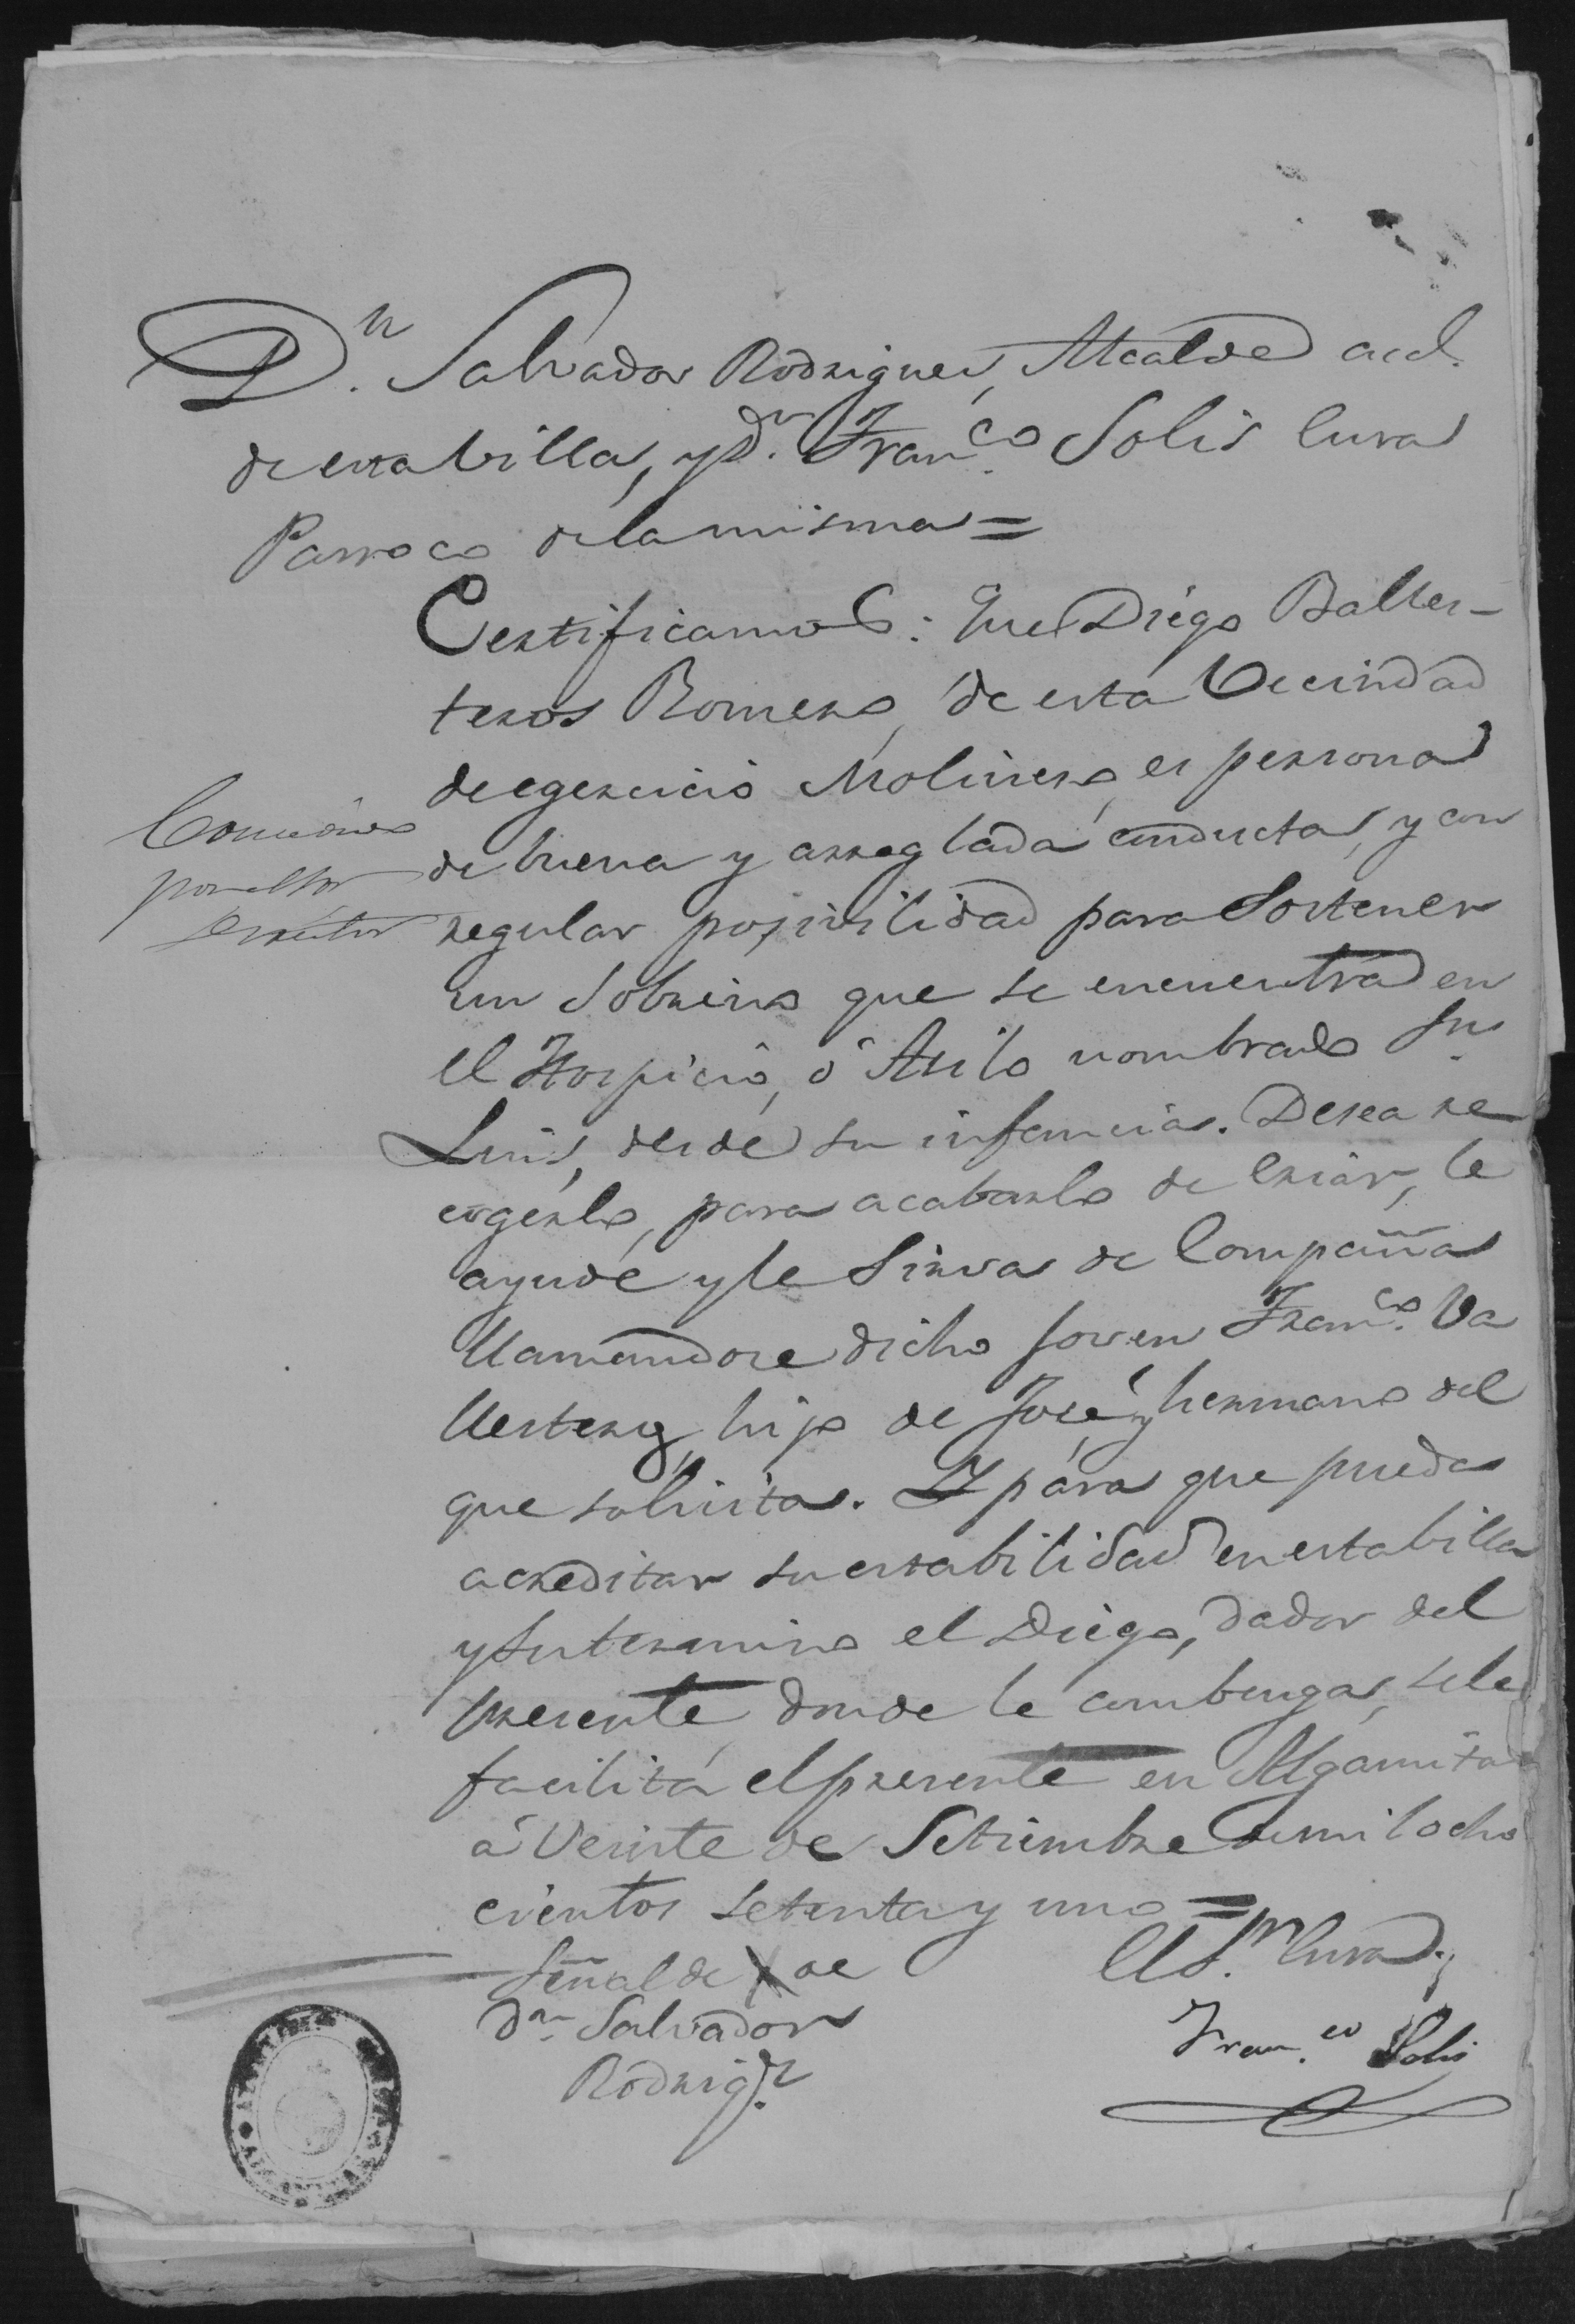 Dn. Salvador Rodrigues, Alcalde acsl.
de esta billa, y Dn. Franco. Solis Cura
Parroco dela misma =
Certificamos: Que Diego Balles-
teros Romero, de esta Vecindad
de egercicio Molinero, es persona
de buena y arreglada conducta, y con
regular posivilidad para Sostener
un Sobrino que se encuentra en
el Hospicio, ó Asilo nombrado Sn.
Luis, desde su infancia. Desea re
cogerlo, para acabarlo de Criar, le
ayude y le Sirva de Compañia
llamandose dicho Joven Franco. Va
llestero, hijo de José, y hermano del
que solicita. Y para que pueda
acreditar su estabilidad en esta billa
y su termino el Diego, dador del
presente, donde le combenga, se le
facilita el presente en Algamitas
á Veinte de Setiembre de mil ocho
cientos setenta y uno =
Concedido
por el Sor
Señal de X de
Dn. Salvador
Rodrigz.
El Sr. Cura
Franco. Solis